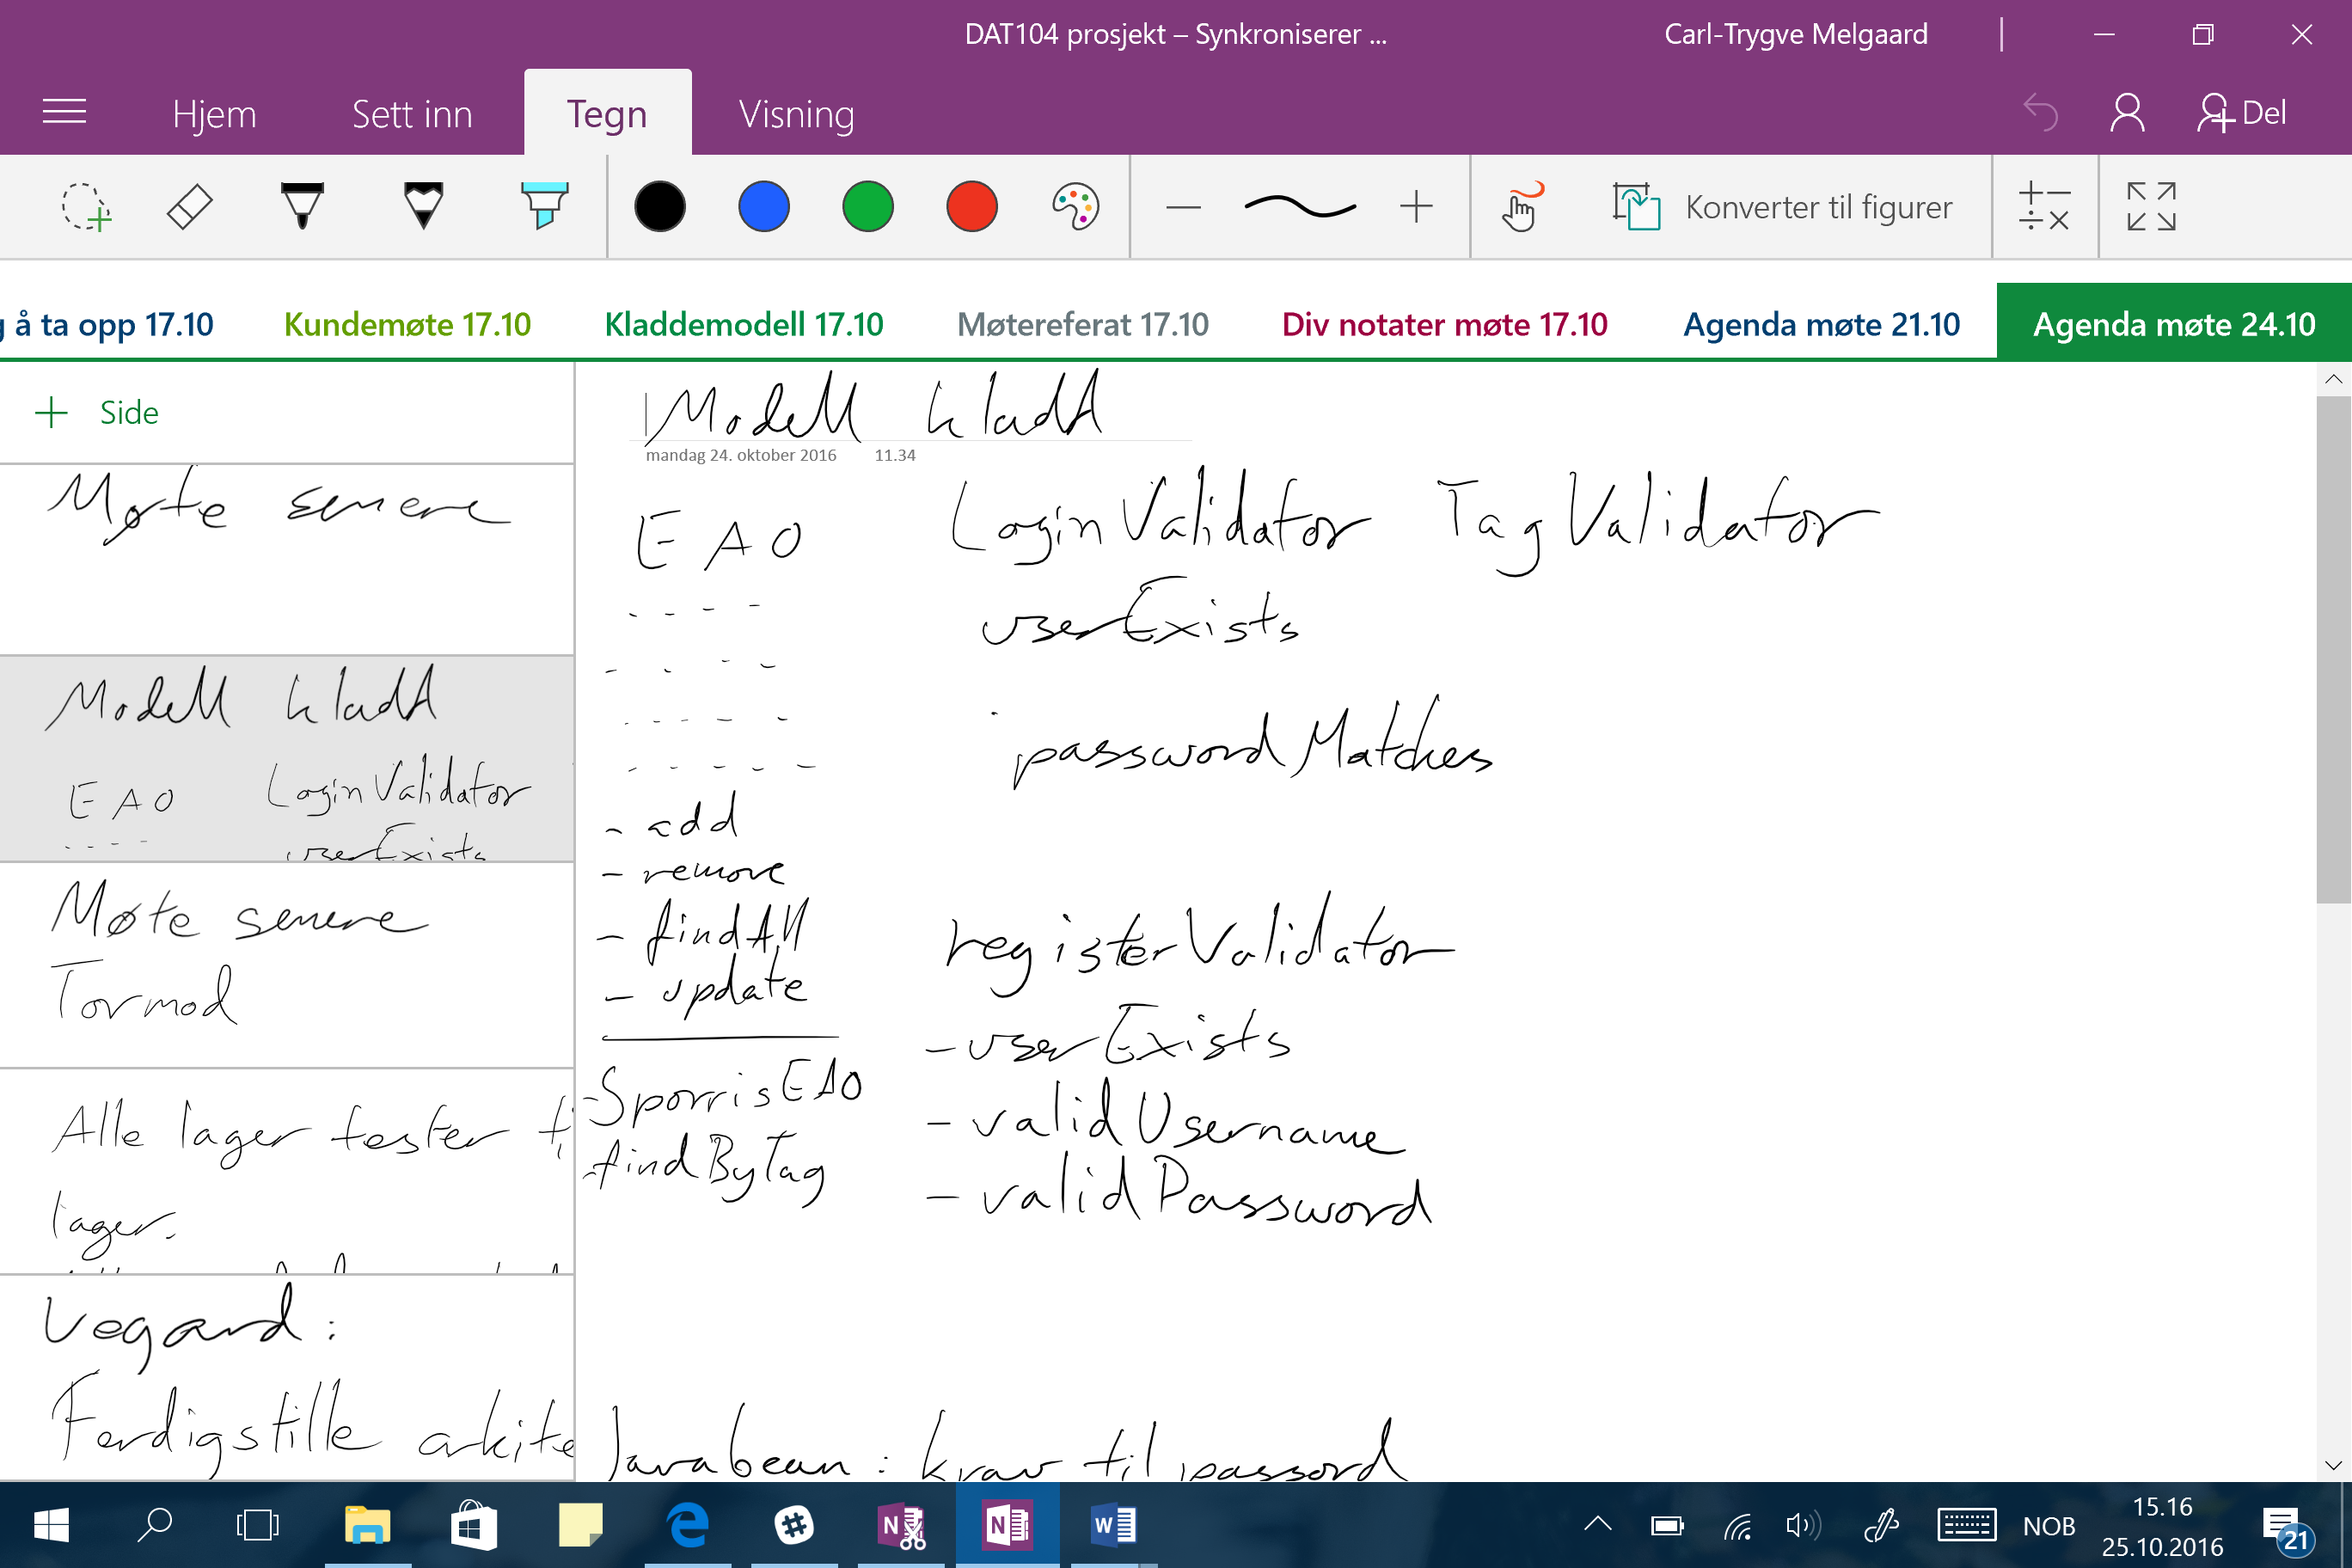 DAT104 prosjekt – Synkroniserer ...
Carl-Trygve Melgaard
Hjem
Sett inn
Tegn
Visning
Del
Konverter til figurer
g å ta opp 17.10
Kundemøte 17.10
Kladdemodell 17.10
Møtereferat 17.10
Div notater møte 17.10
Agenda møte 21.10
Agenda møte 24.10
Side
Møte senere
Modell kladd
EAO LoginValidator
userExists
Møte senere
Tormod
Alle lager tester
lager.
Vegard:
Ferdigstille arkite
Modell kladd
mandag 24. oktober 2016 11.34
EAO
- add
- remove
- findAll
- update
- SporrisEAO
- findByTag
LoginValidator
userExists
passwordMatches
TagValidator
registerValidator
- userExists
- validUsername
- validPassword
Javabean: krav til passord
NOB
15.16
25.10.2016
21